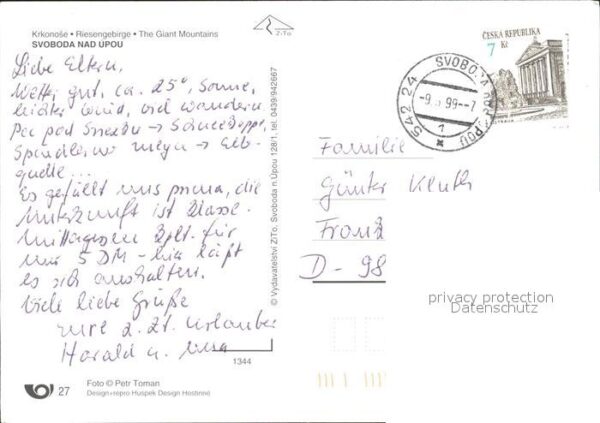 Krkonoše • Riesengebirge • The Giant Mountains
SVOBODA NAD ÚPOU
Liebe Eltern,
Wetter gut, ca. 25°, Sonne,
leichter Wind, viel wandern.
Pec pod Snezku → Schneekoppe,
Spindleruv mlyn → Elb-
quelle ...
Es gefällt uns prima, die
Unterkunft ist Klasse.
Mittagessen kplt. für
nur 5 DM - hier läßt
es sich aushalten.
Viele liebe Grüße
Eure z. Zt. Urlauber
Harald u.
1344
27
Foto © Petr Toman
Design+repro Huspek Design Hostinné
© Vydavatelství ZiTo, Svoboda n.Úpou 128/1, tel. 0439/942667
ZiTo
ČESKÁ REPUBLIKA
7
Kč
SVOBODA NAD ÚPOU
542 24
-9. 99--7
1
Familie
Günter
D - 98
privacy protection
Datenschutz